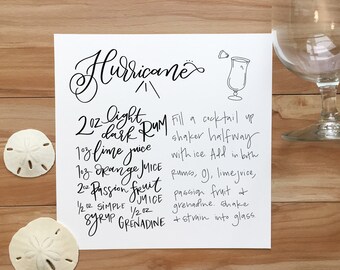 Hurricane
2 oz light dark RUM
1 oz lime juice
1 oz orange JUICE
2 oz Passion fruit JUICE
1/2 oz simple syrup 1/2 oz GRENADINE
Fill a cocktail up
shaker halfway
with ice. Add in both
rums, OJ, lime juice,
passion fruit &
grenadine. Shake
& strain into glass